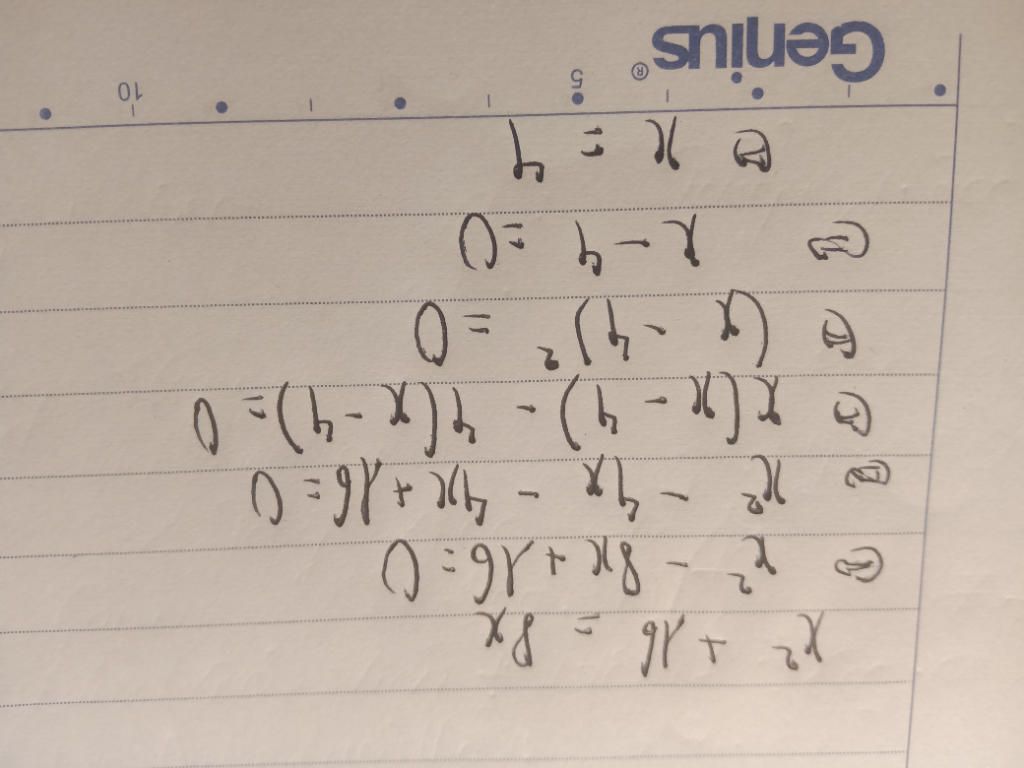 x² + 16 = 8x
⇔ x² - 8x + 16 = 0
⇔ x² - 4x - 4x + 16 = 0
⇔ x(x - 4) - 4(x - 4) = 0
⇔ (x - 4)² = 0
⇔ x - 4 = 0
⇔ x = 4
5 10
Genius®